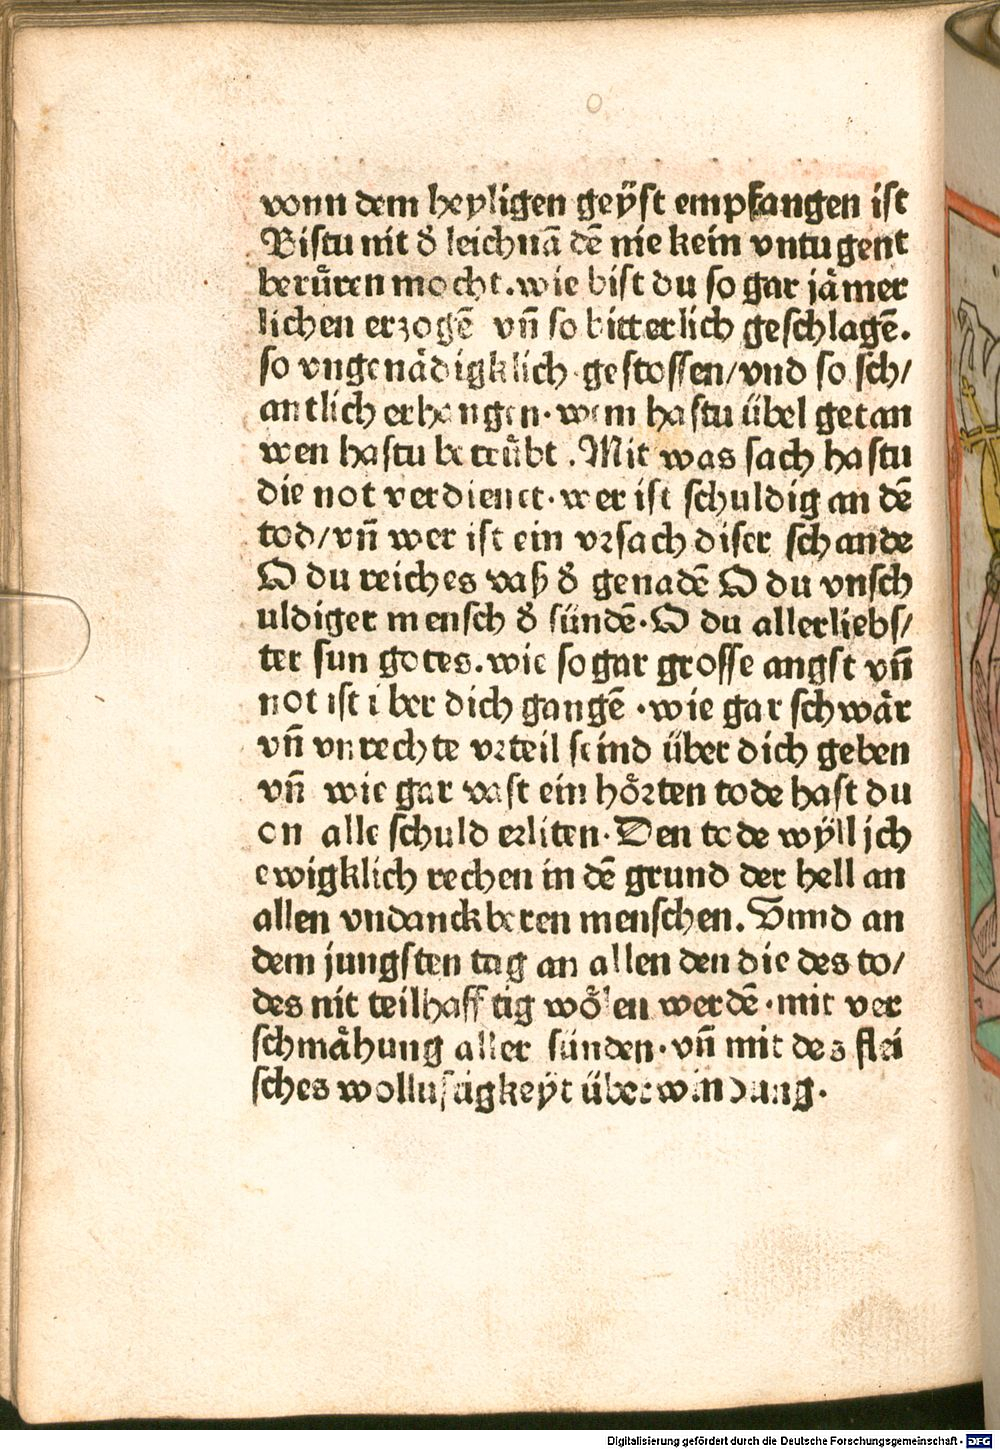 vonn dem heyligen geÿst empfangen ist
Bistu nit d̕ leichnā dē nie kein vntugent
berůren mocht. wie bist du so gar jämer
lichen erzogē vn̄ so bitterlich geschlagē.
so vngenädigklich gestossen/vnd so sch/
antlich erhangen. wem hastu übel getan
wen hastu betrůbt. Mit was sach hastu
die not verdienet. wer ist schuldig an dē
tod/vn̄ wer ist ein vrsach diser schande
O du reiches vaß d̕ genadē O du vnsch
uldiger mensch d̕ sündē. O du allerliebs/
ter sun gotes. wie so gar grosse angst vn̄
not ist iber dich gangē. wie gar schwär
vn̄ vnrechte vrteil seind über dich geben
vn̄ wie gar vast ein hörten tode hast du
on alle schuld erliten. Den tode wÿll jch
ewigklich rechen in dē grund der hell an
allen vndanckberen menschen. Vnnd an
dem jungsten tag an allen den die des to/
des nit teilhafftig wölen werdē. mit ver
schmähung aller sünden. vn̄ mit des flei
sches wollustigkeÿt überwindung.
Digitalisierung gefördert durch die Deutsche Forschungsgemeinschaft - DFG